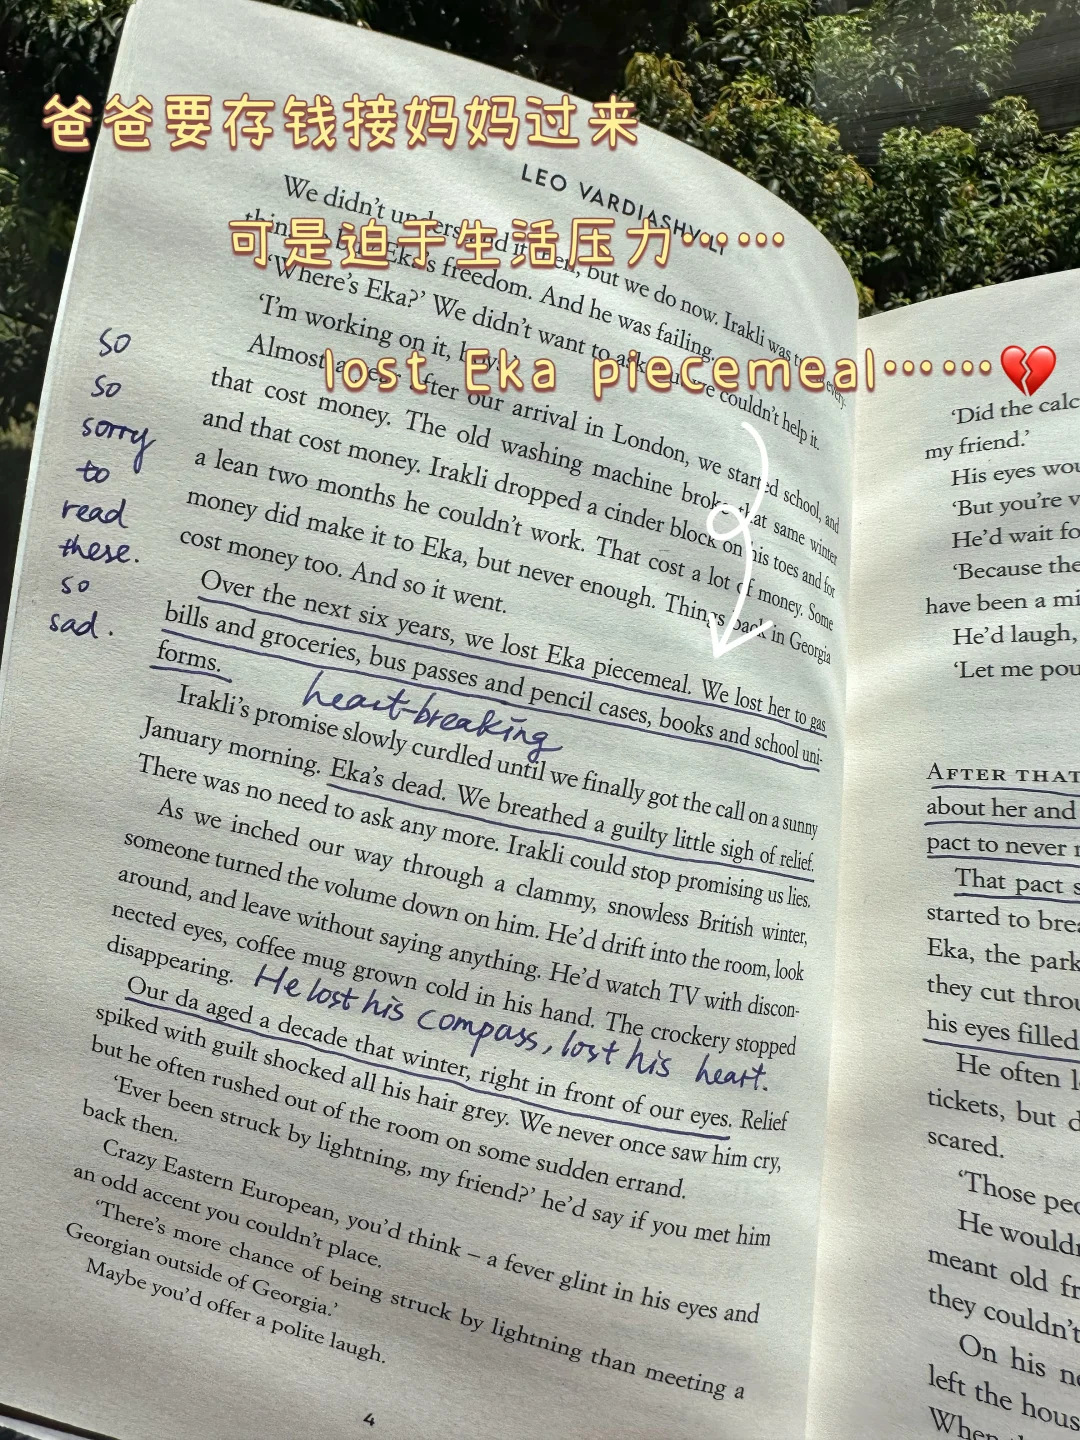 爸爸要存钱接妈妈过来
可是迫于生活压力……
lost Eka piecemeal……💔
LEO VARDIASHVILI
We didn't understand it then, but we do now. Irakli was
Eka's freedom. And he was failing.
'Where's Eka?' We didn't want to ask, but we couldn't help it.
'I'm working on it, boys.'
Almost a year after our arrival in London, we started school, and
that cost money. The old washing machine broke that same winter
and that cost money. Irakli dropped a cinder block on his toes and for
a lean two months he couldn't work. That cost a lot of money. Some
money did make it to Eka, but never enough. Things back in Georgia
cost money too. And so it went.
Over the next six years, we lost Eka piecemeal. We lost her to gas
bills and groceries, bus passes and pencil cases, books and school uni-
forms.
heart-breaking
Irakli's promise slowly curdled until we finally got the call on a sunny
January morning. Eka's dead. We breathed a guilty little sigh of relief.
There was no need to ask any more. Irakli could stop promising us lies.
As we inched our way through a clammy, snowless British winter,
someone turned the volume down on him. He'd drift into the room, look
around, and leave without saying anything. He'd watch TV with discon-
nected eyes, coffee mug grown cold in his hand. The crockery stopped
disappearing.
He lost his compass, lost his heart.
Our da aged a decade that winter, right in front of our eyes. Relief
spiked with guilt shocked all his hair grey. We never once saw him cry,
but he often rushed out of the room on some sudden errand.
'Ever been struck by lightning, my friend?' he'd say if you met him
back then.
Crazy Eastern European, you'd think – a fever glint in his eyes and
an odd accent you couldn't place.
'There's more chance of being struck by lightning than meeting a
Georgian outside of Georgia.'
Maybe you'd offer a polite laugh.
4
so
so
sorry
to
read
these.
so
sad.
'Did the calc
my friend.'
His eyes wou
'But you're v
He'd wait fo
'Because the
have been a mi
He'd laugh,
'Let me pou
AFTER THAT
about her and
pact to never
That pact s
started to brea
Eka, the park
they cut throu
his eyes filled
He often l
tickets, but d
scared.
'Those peo
He wouldn
meant old fr
they couldn't
On his ne
left the hous